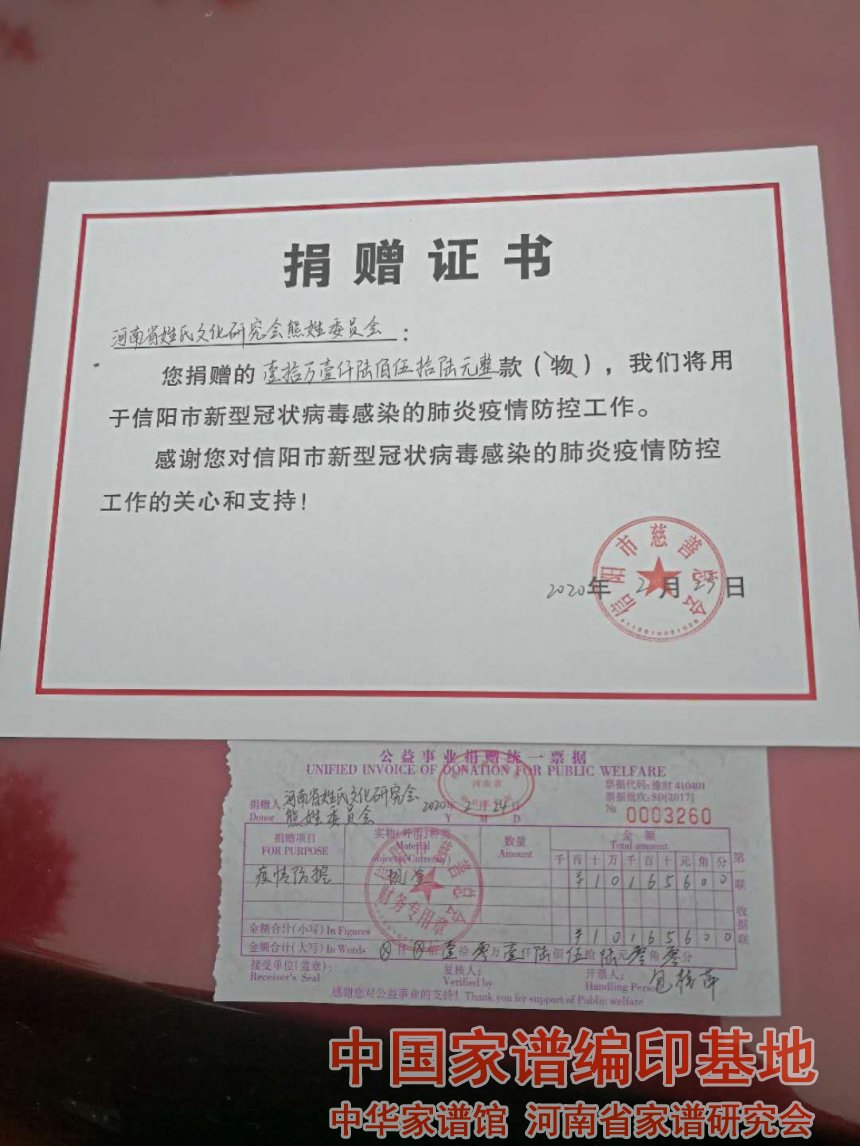 捐赠证书
河南省姓氏文化研究会熊姓委员会：
您捐赠的壹拾万壹仟陆佰伍拾陆元整款（物），我们将用
于信阳市新型冠状病毒感染的肺炎疫情防控工作。
感谢您对信阳市新型冠状病毒感染的肺炎疫情防控
工作的关心和支持！
信阳市慈善总会
2020年2月25日
公益事业捐赠统一票据
UNIFIED INVOICE OF DONATION FOR PUBLIC WELFARE
河南省
票据代码：豫财 410401
票据批次：SD[2017]
捐赠人 河南省姓氏文化研究会 2020年2月25日
Donor 熊姓委员会 Y M D
№ 0003260
捐赠项目 实物(外币)种类 数量 金额
FOR PURPOSE Material objects(Currency) Amount Total amount
千百十万千百十元角分
疫情防控 现金 ¥10165600
信阳市慈善总会
财务专用章
金额合计(小写) In Figures ¥10165600
金额合计(大写) In Words ⊗仟⊗佰壹拾零万壹仟陆佰伍拾陆元零角零分
第一联 收据联
接受单位(盖章)： 复核人： 开票人：
Receiver's Seal Verified by Handling Person
感谢您对公益事业的支持！ Thank you for support of Public welfare
中国家谱编印基地
中华家谱馆 河南省家谱研究会